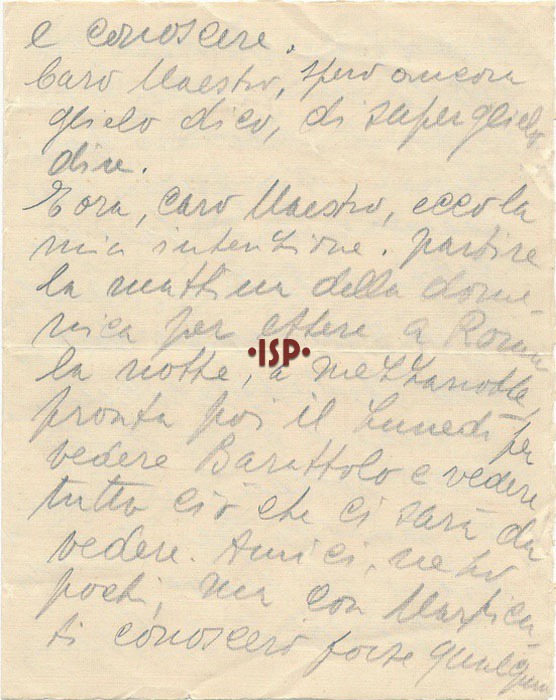 e conoscere.
Caro Maestro, spero ancora
glielo dico, di saperglielo
dire.
Eora, caro Maestro, ecco la
mia intenzione. partire
la mattina della dome
nica per essere a Roma
·ISP·
la notte, a mezzanotte,
pronta poi il Lunedì per
vedere Barattolo e vedere
tutto ciò che ci sarà da
vedere. Amici, ne ho
pochi, ma con
ti conoscerò forse qualcuno